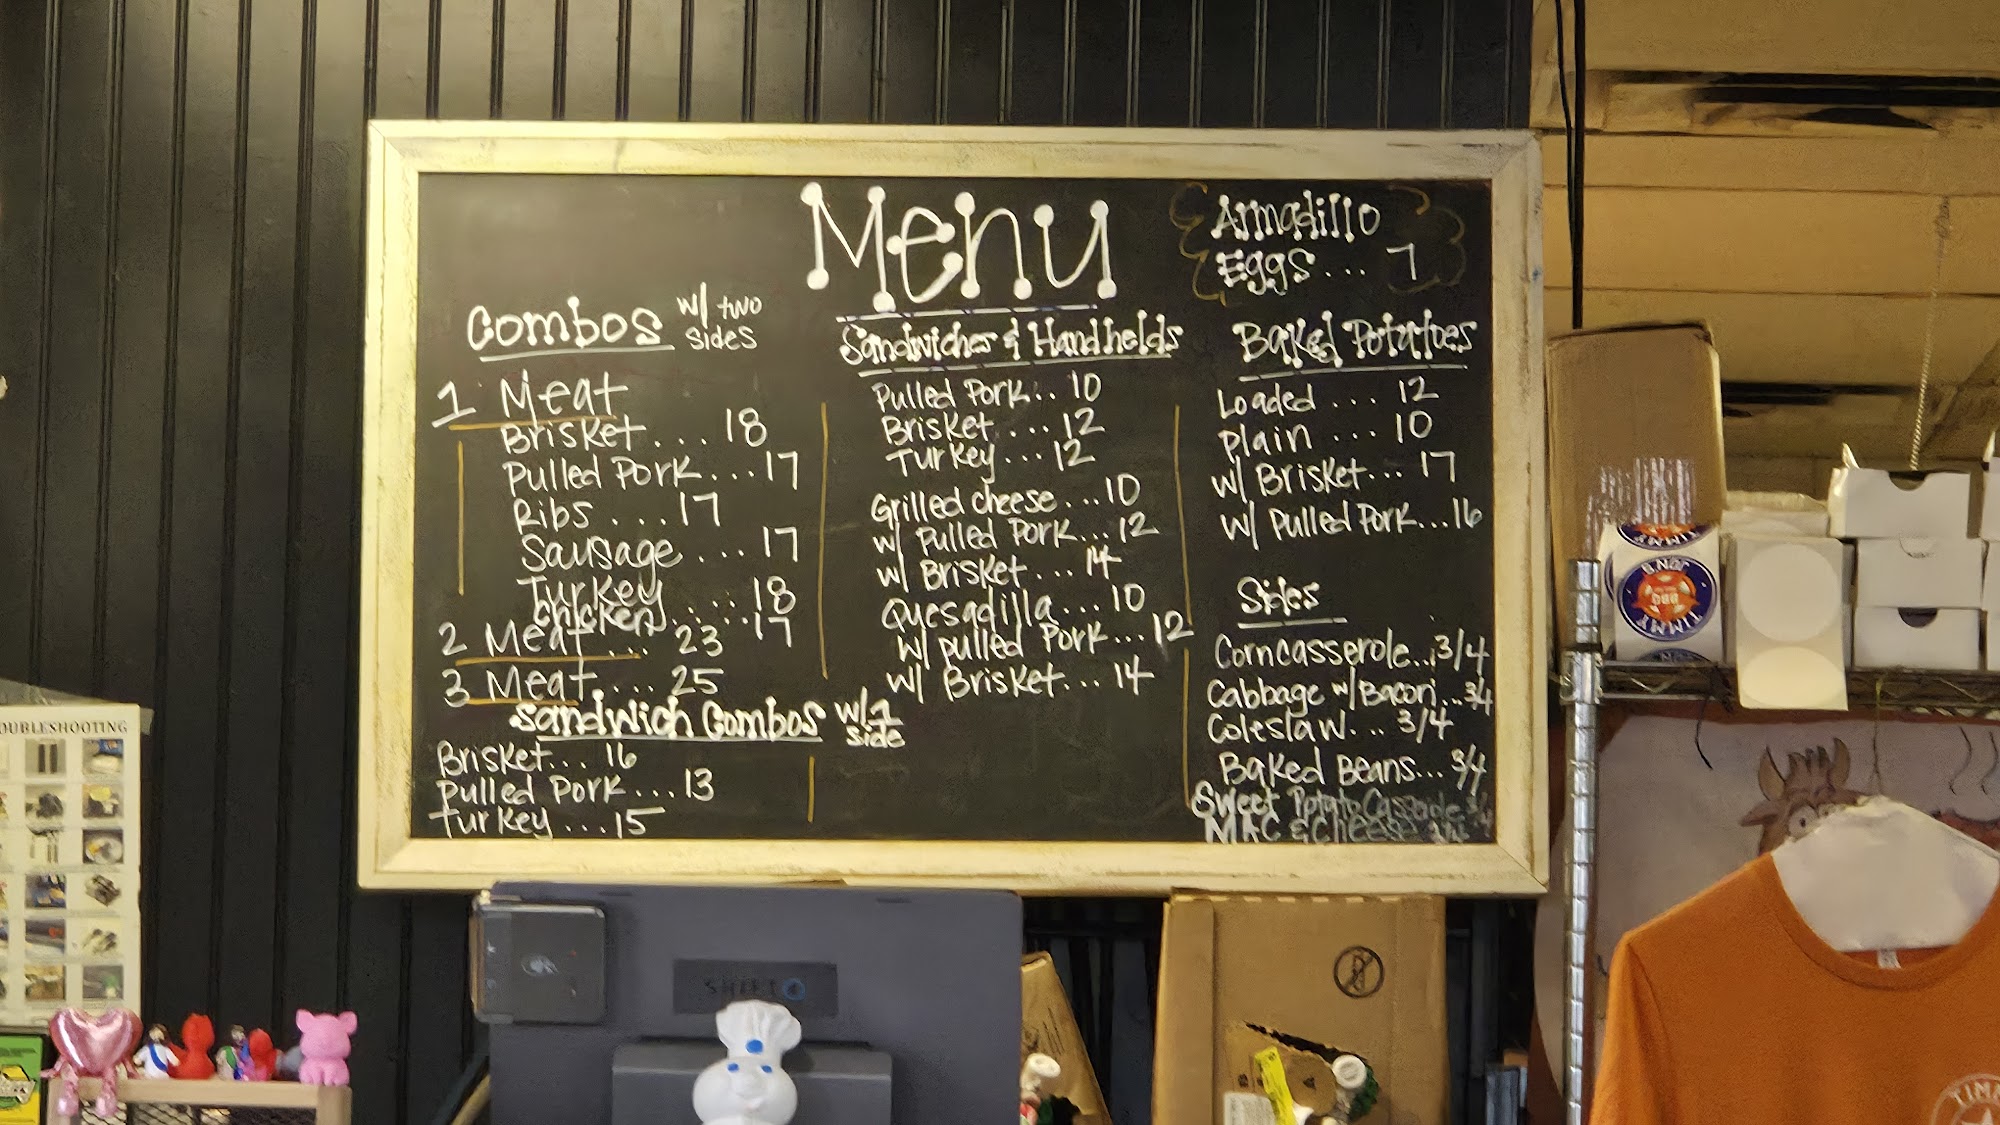 Menu
Armadillo
Eggs... 7
Combos w/ two
sides
1 Meat
Brisket... 18
Pulled Pork...17
Ribs...17
Sausage...17
Turkey...18
Chicken.....17
2 Meat... 23
3 Meat.... 25
Sandwich Combos w/1
side
Brisket... 16
Pulled Pork...13
Turkey...15
Sandwiches & Handhelds
Pulled Pork.. 10
Brisket... 12
Turkey...12
Grilled cheese...10
w/ Pulled Pork...12
w/ Brisket...14
Quesadilla...10
w/ pulled Pork...12
w/ Brisket...14
Baked Potatoes
Loaded ... 12
Plain ... 10
w/ Brisket... 17
w/ Pulled Pork...16
Sides
Corncasserole...3/4
Cabbage w/Bacon...3/4
Coleslaw... 3/4
Baked Beans...3/4
Sweet Potato 3/4
MAC & Cheese 3/4
OUBLESHOOTING
SHIFT4
TIMMY
BBQ
TIMM